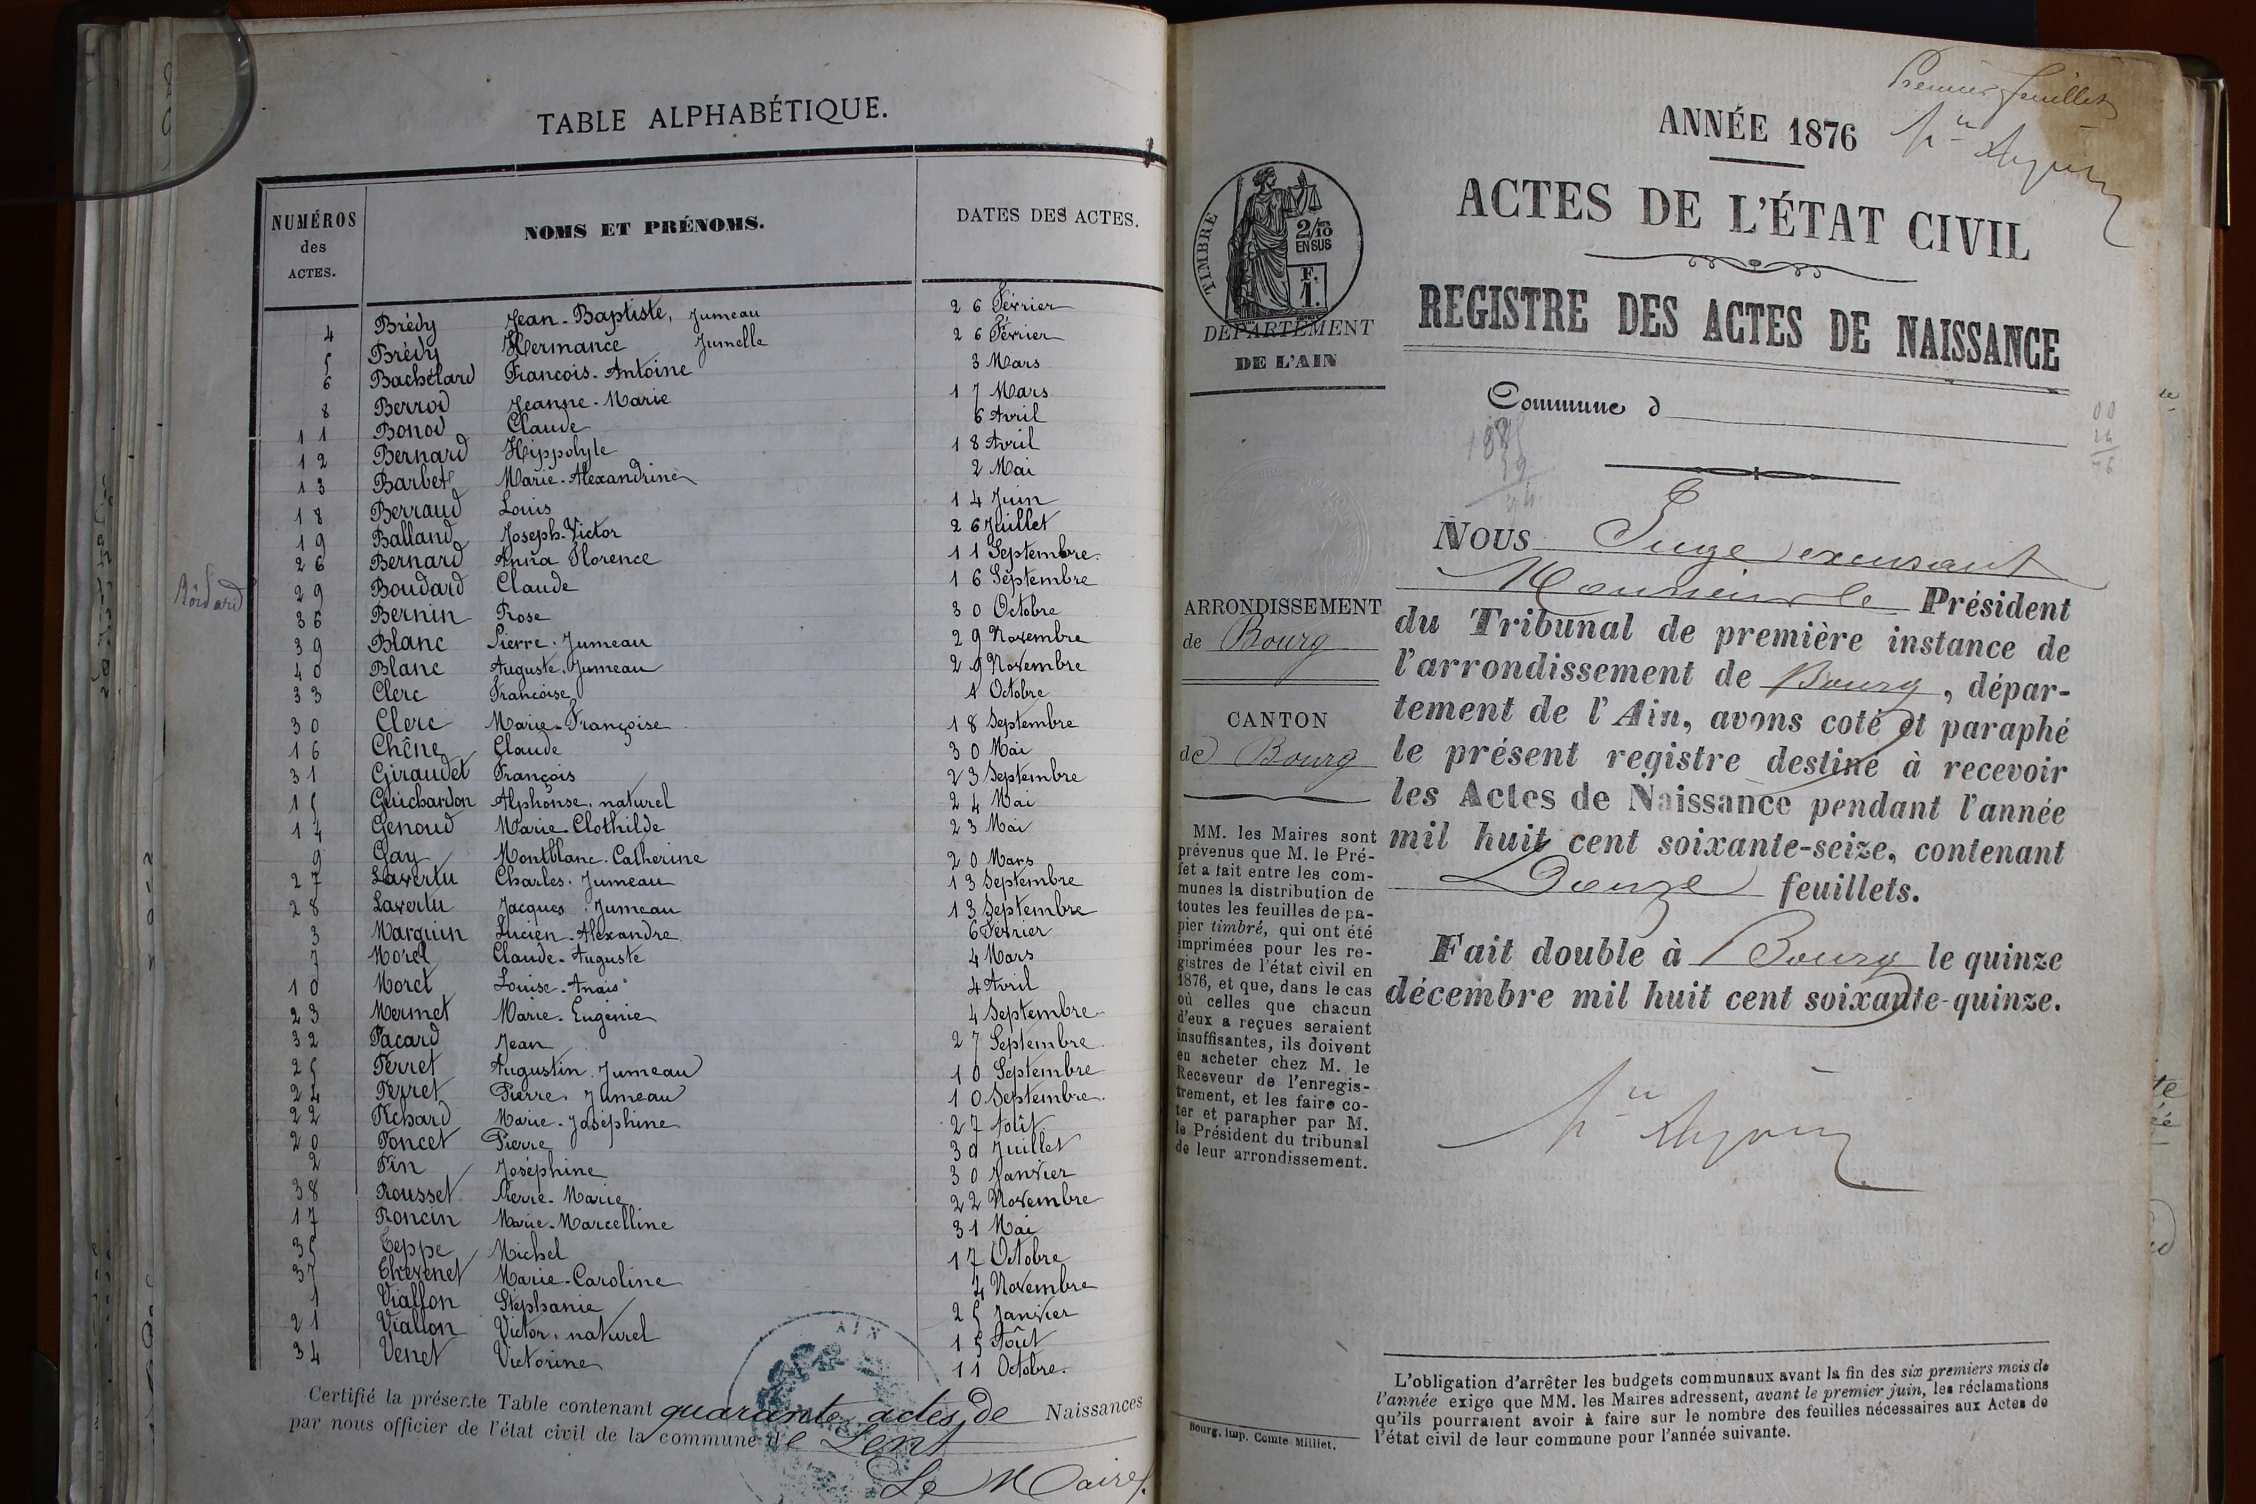 TABLE ALPHABÉTIQUE.
NUMÉROS des ACTES. NOMS ET PRÉNOMS. DATES DES ACTES.
4 Brédy Jean-Baptiste, Jumeau 26 Février
5 Brédy Hermance Jumelle 26 Février
6 Bachelard Francois-Antoine 3 Mars
8 Berrod Jeanne-Marie 17 Mars
11 Bonod Claude 6 Avril
12 Bernard Hippolyte 18 Avril
13 Barbet Marie-Alexandrine 2 Mai
18 Berraud Louis 14 Juin
19 Balland Joseph-Victor 26 Juillet
26 Bernard Anna Florence 11 Septembre.
29 Boudard Claude 16 Septembre
36 Bernin Rose 30 Octobre
39 Blanc Pierre. Jumeau 29 Novembre
40 Blanc Auguste. Jumeau 29 Novembre
33 Clerc Francoise 1 Octobre
30 Clerc Marie-Françoise 18 Septembre
16 Chêne Claude 30 Mai
31 Giraudet François 23 Septembre
15 Guichardon Alphonse. naturel 24 Mai
14 Genoud Marie-Clothilde 23 Mai
9 Gay Montblanc. Catherine 20 Mars
27 Lavertu Charles. Jumeau 13 Septembre
28 Lavertu Jacques. Jumeau 13 Septembre
3 Marguin Lucien-Alexandre 6 Février
7 Morel Claude-Auguste 4 Mars
10 Morel Louise-Anais 4 Avril
23 Mermet Marie-Eugénie 4 Septembre
32 Pacard Jean 27 Septembre
25 Perret Augustin. Jumeau 10 Septembre
24 Perret Pierre. Jumeau 10 Septembre.
22 Pichard Marie-Joséphine 27 Août
20 Poncet Pierre 30 Juillet
2 Pin Joséphine 30 Janvier
38 Rousset Pierre-Marie 22 Novembre
17 Roncin Marie-Marcelline 31 Mai
35 Teppe Michel 17 Octobre
37 Thevenet Marie-Caroline 4 Novembre
1 Viallon Stéphanie 25 Janvier
21 Viallon Victor. naturel 15 Août
34 Venet Victorine 11 Octobre.
Certifié la présente Table contenant quarante actes de Naissances
par nous officier de l'état civil de la commune de Lent
Le Maire.
AIN
Premier feuillet
ANNÉE 1876
ACTES DE L'ÉTAT CIVIL
REGISTRE DES ACTES DE NAISSANCE
TIMBRE
2/10 EN SUS
F. 1.
DÉPARTEMENT
DE L'AIN
Commune d
ARRONDISSEMENT
de Bourg
CANTON
de Bourg
MM. les Maires sont
prévenus que M. le Pré-
fet a fait entre les com-
munes la distribution de
toutes les feuilles de pa-
pier timbré, qui ont été
imprimées pour les re-
gistres de l'état civil en
1876, et que, dans le cas
où celles que chacun
d'eux a reçues seraient
insuffisantes, ils doivent
en acheter chez M. le
Receveur de l'enregis-
trement, et les faire co-
ter et parapher par M.
le Président du tribunal
de leur arrondissement.
NOUS Juge excusant
Monsieur le Président
du Tribunal de première instance de
l'arrondissement de Bourg, dépar-
tement de l'Ain, avons coté et paraphé
le présent registre destiné à recevoir
les Actes de Naissance pendant l'année
mil huit cent soixante-seize, contenant
Douze feuillets.
Fait double à Bourg le quinze
décembre mil huit cent soixante-quinze.
L'obligation d'arrêter les budgets communaux avant la fin des six premiers mois de
l'année exige que MM. les Maires adressent, avant le premier juin, les réclamations
qu'ils pourraient avoir à faire sur le nombre des feuilles nécessaires aux Actes de
l'état civil de leur commune pour l'année suivante.
Bourg, imp. Comte Milliet.